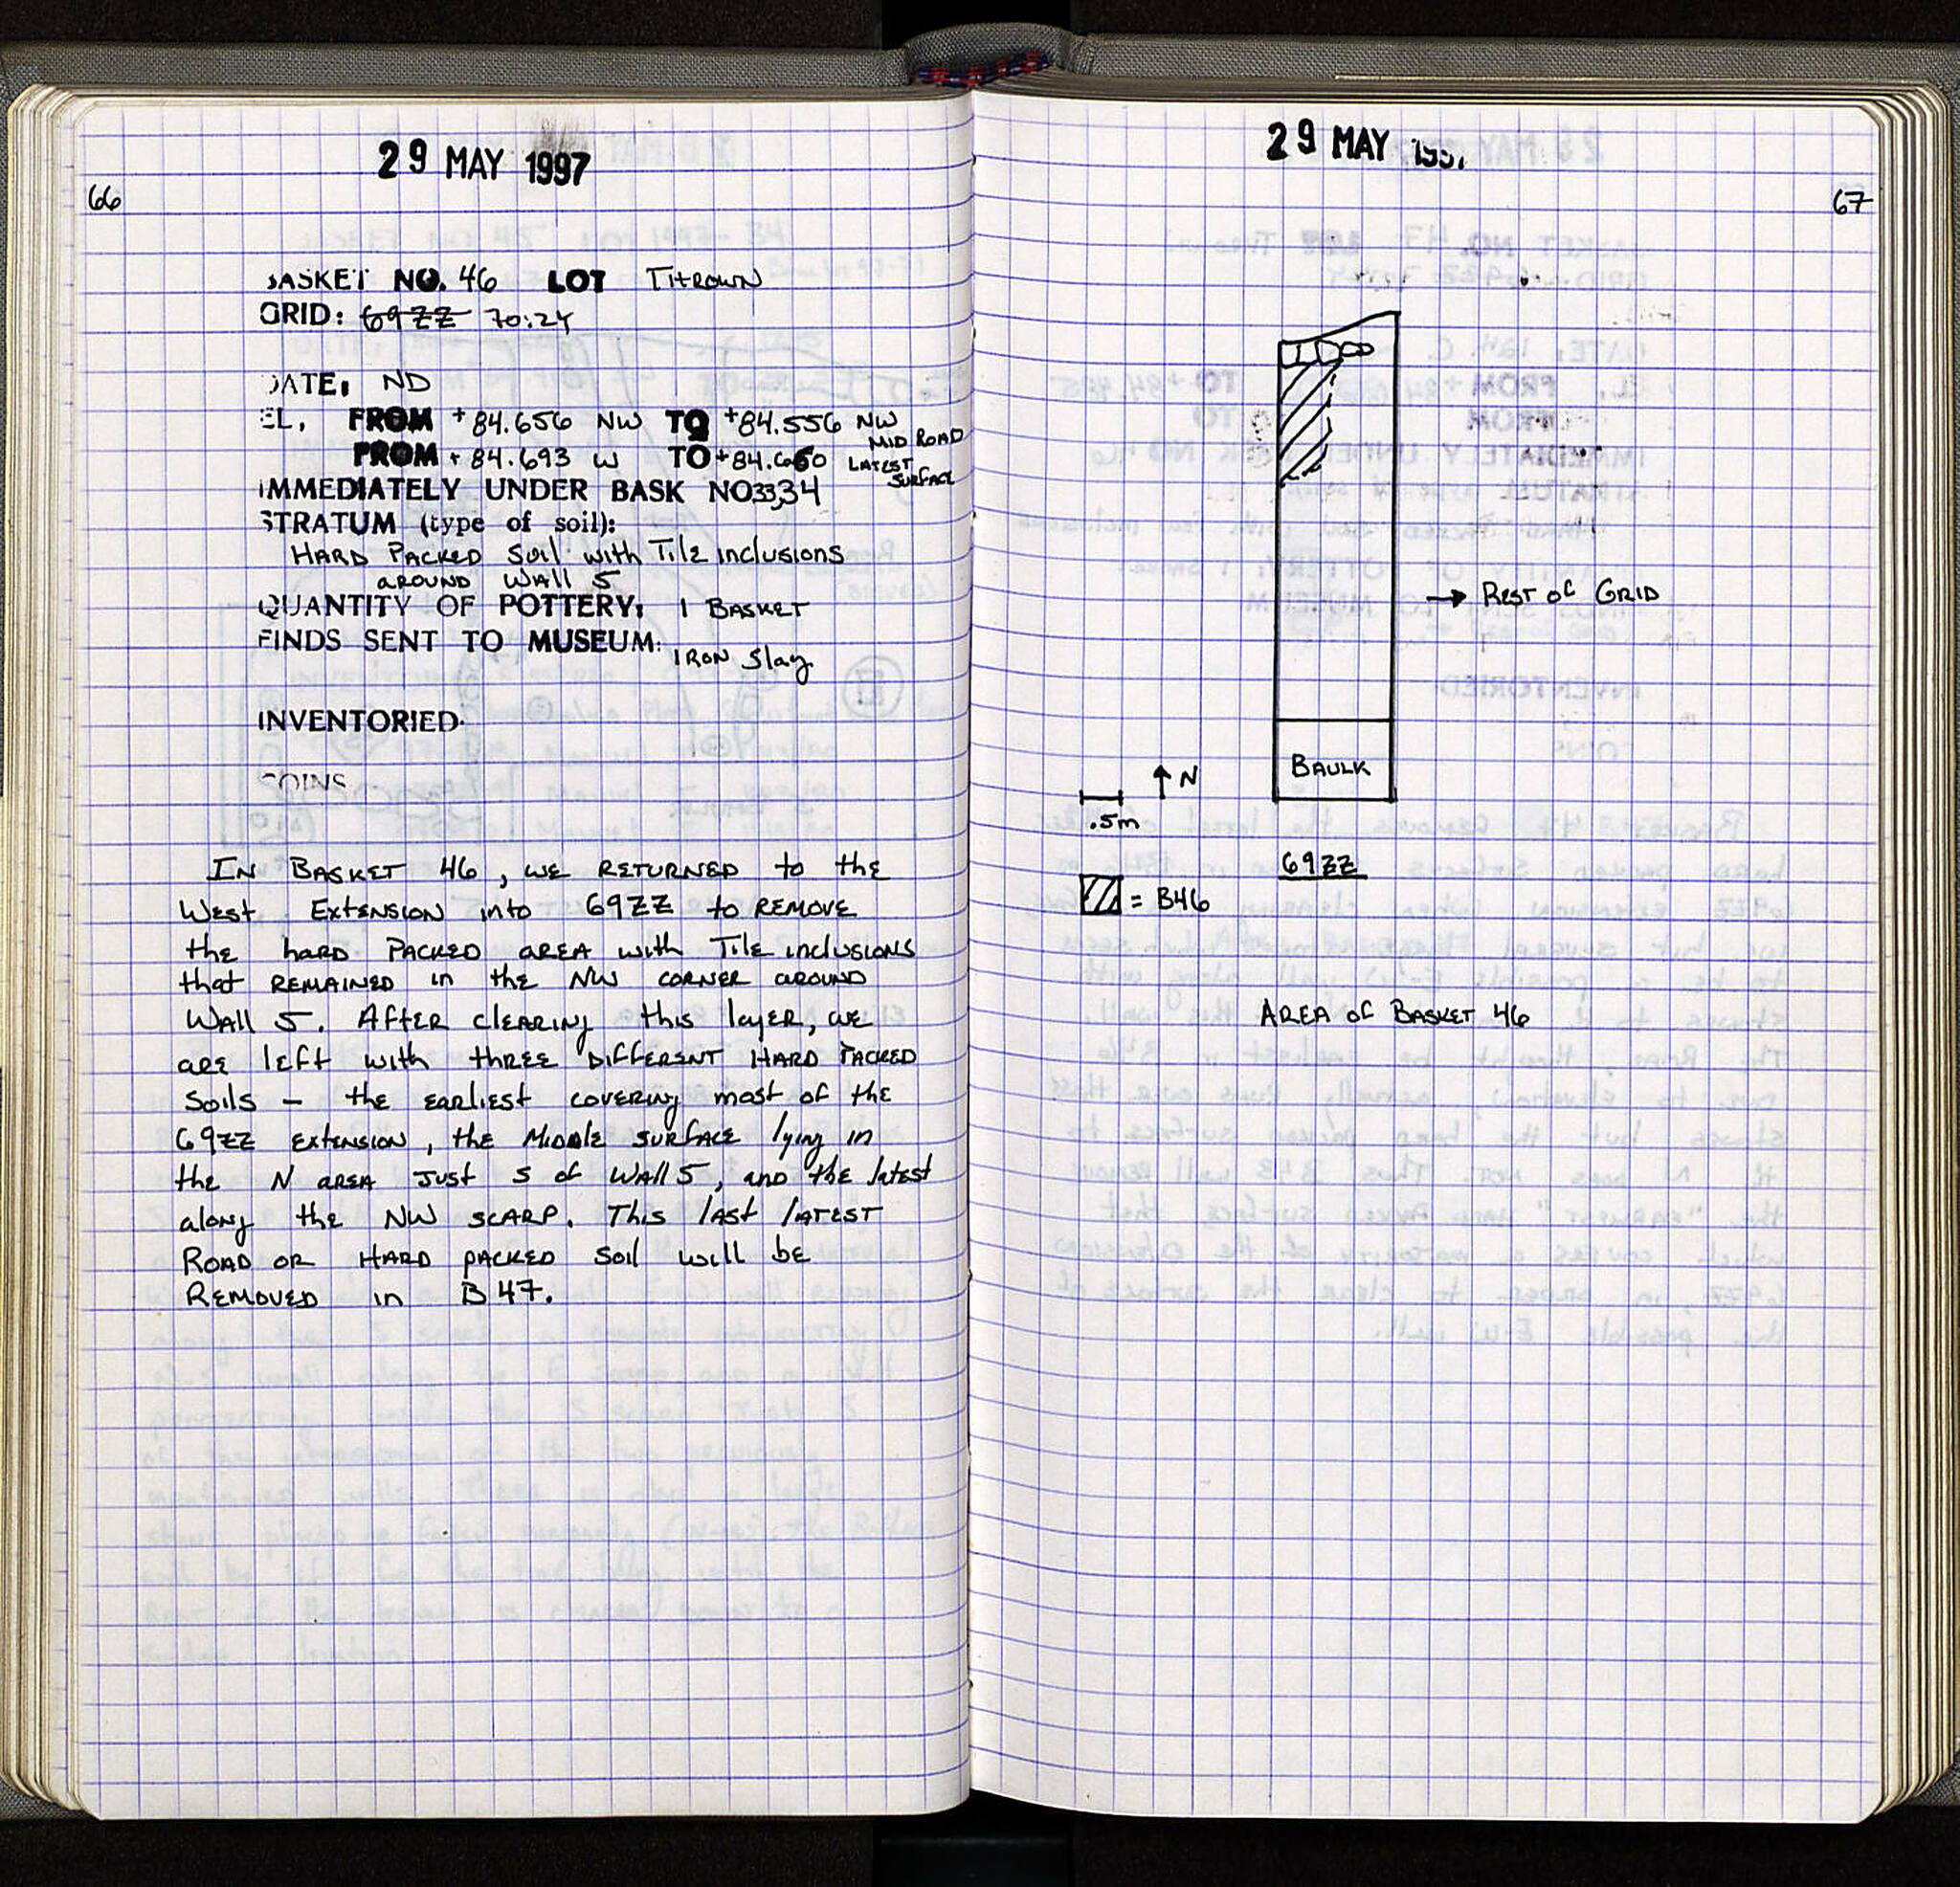 29 MAY 1997
66
BASKET NO. 46 LOT THROWN
GRID: 69ZZ 70:24
DATE: ND
EL. FROM +84.656 NW TO +84.556 NW MID ROAD
FROM +84.693 W TO +84.660 LATEST SURFACE
IMMEDIATELY UNDER BASK NO 33,34
STRATUM (type of soil):
HARD PACKED Soil with Tile inclusions
AROUND WALL 5
QUANTITY OF POTTERY: 1 BASKET
FINDS SENT TO MUSEUM: IRON Slag
INVENTORIED
COINS
IN BASKET 46, WE RETURNED to the
West Extension into 69ZZ to REMOVE
the hard PACKED AREA with Tile inclusions
that REMAINED in the NW CORNER AROUND
Wall 5. After clearing this layer, we
are left with three DIFFERENT HARD PACKED
Soils - the earliest covering most of the
69ZZ EXTENSION, the Middle SURFACE lying in
the N AREA Just S of Wall 5, and the latest
along the NW SCARP. This last LATEST
ROAD OR HARD PACKED Soil will be
REMOVED in B47.
29 MAY
67
→ Rest of GRID
BAULK
↑ N
.5m
69ZZ
= B46
AREA of BASKET 46